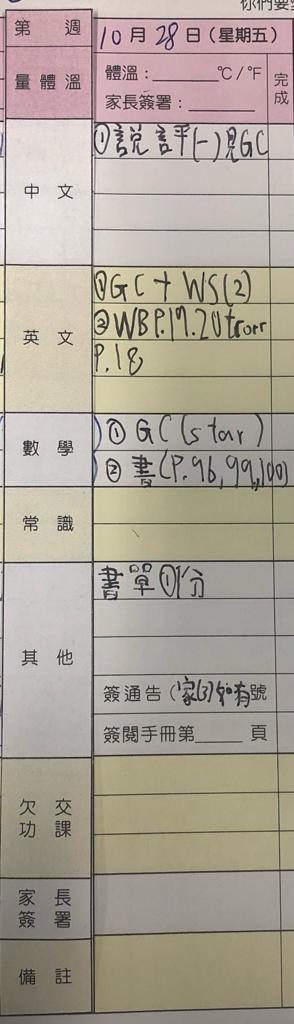 你們要
第 週
10月28日(星期五)
量體溫
體溫:______ °C/°F
家長簽署:______
完成
中文
①說評(一)見GC
英文
①GC+WS(2)
②WBP.17.20
P.18
數學
①GC(star)
②書(P.96,99,100)
常識
其他
書單①份
簽通告(家(3)如有號
簽閱手冊第____頁
欠交
功課
家長
簽署
備註